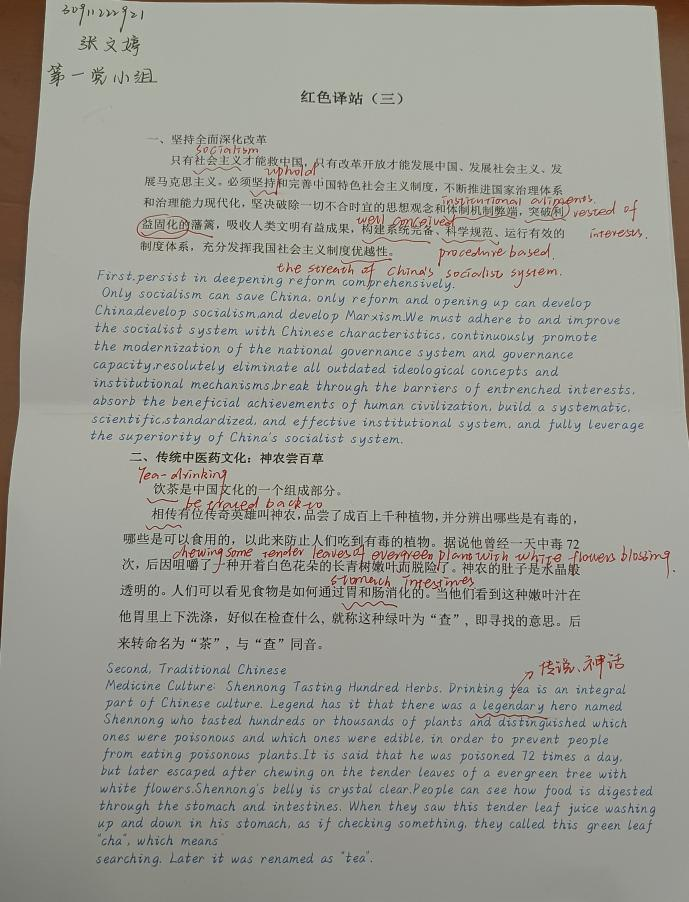 30911222921
张文婷
第一党小组
红色译站（三）
一、坚持全面深化改革
socialism
只有社会主义才能救中国，只有改革开放才能发展中国、发展社会主义、发
uphold
展马克思主义。必须坚持和完善中国特色社会主义制度，不断推进国家治理体系
institutional ailments.
和治理能力现代化，坚决破除一切不合时宜的思想观念和体制机制弊端，突破利
vested of
益固化的藩篱，吸收人类文明有益成果，构建系统完备、科学规范、运行有效的
well conceived
interests.
制度体系，充分发挥我国社会主义制度优越性。
procedure based.
the streath of China's socialist system.
First,persist in deepening reform comprehensively.
Only socialism can save China, only reform and opening up can develop
China,develop socialism,and develop Marxism.We must adhere to and improve
the socialist system with Chinese characteristics, continuously promote
the modernization of the national governance system and governance
capacity,resolutely eliminate all outdated ideological concepts and
institutional mechanisms,break through the barriers of entrenched interests,
absorb the beneficial achievements of human civilization, build a systematic,
scientific,standardized, and effective institutional system, and fully leverage
the superiority of China's socialist system.
二、传统中医药文化：神农尝百草
Tea-drinking
饮茶是中国文化的一个组成部分。
be traced back to
相传有位传奇英雄叫神农，品尝了成百上千种植物，并分辨出哪些是有毒的，
哪些是可以食用的，以此来防止人们吃到有毒的植物。据说他曾经一天中毒 72
chewing some tender leaves of evergreen plant with white flowers blossing.
次，后因咀嚼了一种开着白色花朵的长青树嫩叶而脱险了。神农的肚子是水晶般
stomach intestines
透明的。人们可以看见食物是如何通过胃和肠消化的。当他们看到这种嫩叶汁在
他胃里上下洗涤，好似在检查什么，就称这种绿叶为“查”，即寻找的意思。后
来转命名为“茶”，与“查”同音。
传说、神话
Second, Traditional Chinese
Medicine Culture: Shennong Tasting Hundred Herbs. Drinking tea is an integral
part of Chinese culture. Legend has it that there was a legendary hero named
Shennong who tasted hundreds or thousands of plants and distinguished which
ones were poisonous and which ones were edible, in order to prevent people
from eating poisonous plants.It is said that he was poisoned 72 times a day,
but later escaped after chewing on the tender leaves of a evergreen tree with
white flowers.Shennong's belly is crystal clear.People can see how food is digested
through the stomach and intestines. When they saw this tender leaf juice washing
up and down in his stomach, as if checking something, they called this green leaf
"cha", which means
searching. Later it was renamed as "tea".